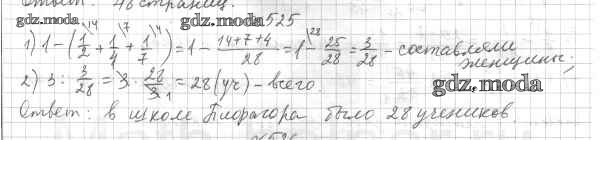 Ответ: 48 страниц.
gdz.moda gdz.moda 525
1) 1 - (1/2 \14 + 1/4 \7 + 1/7 \4) = 1 - (14+7+4)/28 = 1 \28 - 25/28 = 3/28 - составляли женщины;
2) 3 : 3/28 = 3 · 28/3 1 = 28 (уч) - всего.
gdz.moda
Ответ: в школе Пифагора было 28 учеников.